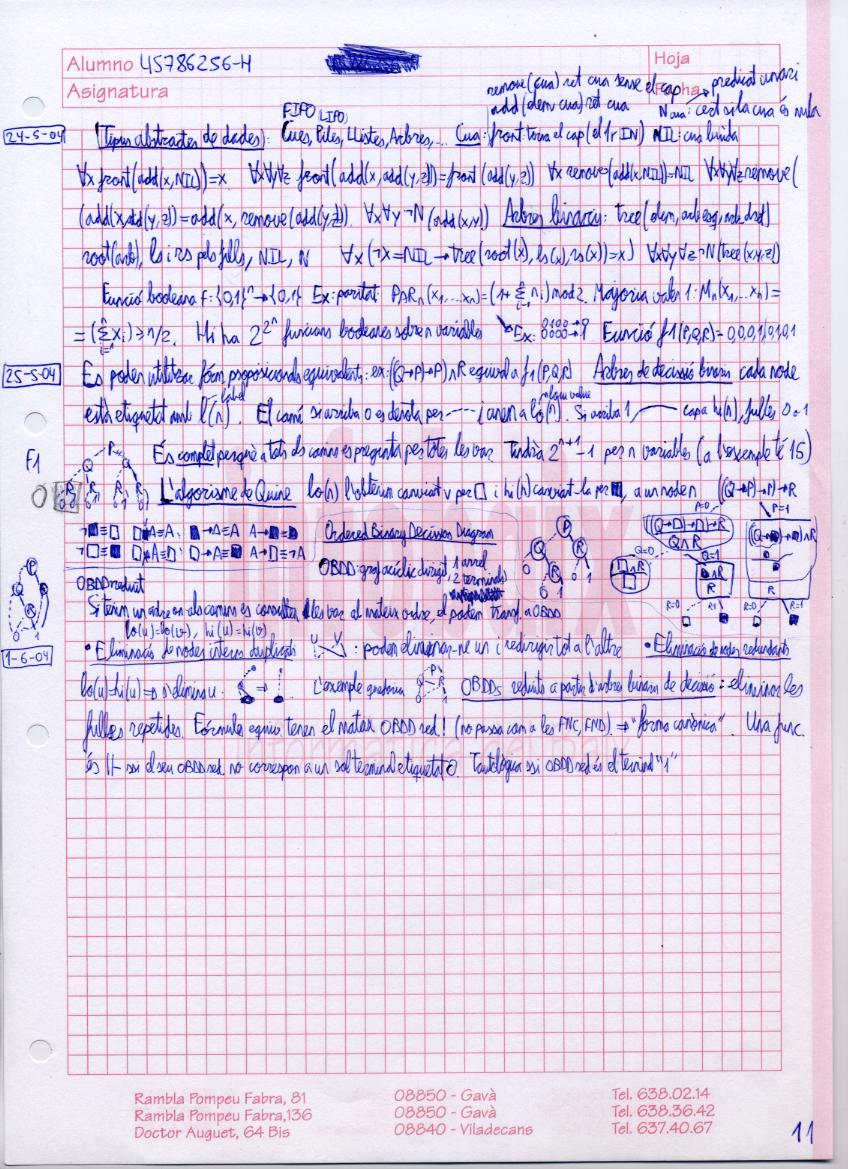 Alumno 45786256-H
Hoja
Asignatura
Fecha
remove(cua) ret cua sense el cap predicat unari
add(elem, cua) ret cua N cua: cert si la cua és nula
FIFO LIFO
24-5-04 Tipus abstractes de dades: Cues, Piles, Llistes, Arbres,... Cua: front torna el cap (el 1r IN) NIL: cua buida
∀x front(add(x,NIL))=x ∀x∀y∀z front(add(x,add(y,z))=front(add(y,z)) ∀x remove(add(x,NIL))=NIL ∀x∀y∀z remove(
(add(x,add(y,z))=add(x, remove(add(y,z)). ∀x∀y ¬N(add(x,y)) Arbres binaris: tree(elem, arb esq, arb dret)
root(arb), ls i rs pels fills, NIL, N ∀x(¬x=NIL→tree(root(x), ls(x), rs(x))=x) ∀x∀y∀z¬N(tree(x,y,z))
Funció booleana f:{0,1}ⁿ→{0,1} Ex: paritat PARn(x1,...xn)=(1+Σni) mod 2. Majoria valen 1: Mn(x1,...xn)=
=(Σxi)≥n/2. Hi ha 2^2^n funcions booleanes sobre n variables Ex: Funció f1(P,Q,R)=0,0,0,1,0,1,0,1
25-5-04 Es poden utilitzar fórm. proposicionals equivalents: ex: ((Q→P)→P)∧R equival a f1(P,Q,R) Arbres de decisió binaris cada node
label
està etiquetat amb l(n). El camí si arriba 0 es denota per ----- i anem a lo(n). Si arriba 1, cap a hi(n), fulles 0 o 1
F1 És complet perquè a tots els camins es pregunta per totes les var. Tindrà 2^(n+1)-1 per n variables (a l'exemple té 15)
L'algorisme de Quine lo(n) l'obtenim canviant v per □ i hi(n) canviant-la per ■, a un node n ((Q→P)→P)→R
P=0 P=1
¬■≡□ □∧A≡A ■→A≡A A→■≡■ Ordered Binary Decision Diagram
¬□≡■ □→A≡■ A→□≡¬A
Q∧R Q=0 Q=1
OBDD: graf acíclic dirigit 1 arrel
2 terminals
R=0 R=1 R=0 R=1
OBDD reduït
Si tenim un arbre on als camins es consulten les var al mateix ordre, el podem transf. a OBDD
lo(u)=lo(v), hi(u)=hi(v)
1-6-04 • Eliminació de nodes interns duplicats : podem eliminar-ne un i redirigir tot a l'altre • Eliminació de nodes redundants
lo(u)=hi(u)→ s'elimina u. L'exemple quedaria OBDDs reduïts a partir d'arbres binaris de decisió: eliminar les
fulles repetides. Fórmules equiv. tenen el mateix OBDD red! (no passa com a les FNC, FND). ⇒ "forma canònica". Una func.
és ⊩ ssi el seu OBDD red. no correspon a un sol terminal etiquetat 0. Tautològica ssi OBDD red és el terminal "1"
Rambla Pompeu Fabra, 81 08850 - Gavà Tel. 638.02.14
Rambla Pompeu Fabra,136 08850 - Gavà Tel. 638.36.42
Doctor Auguet, 64 Bis 08840 - Viladecans Tel. 637.40.67
11